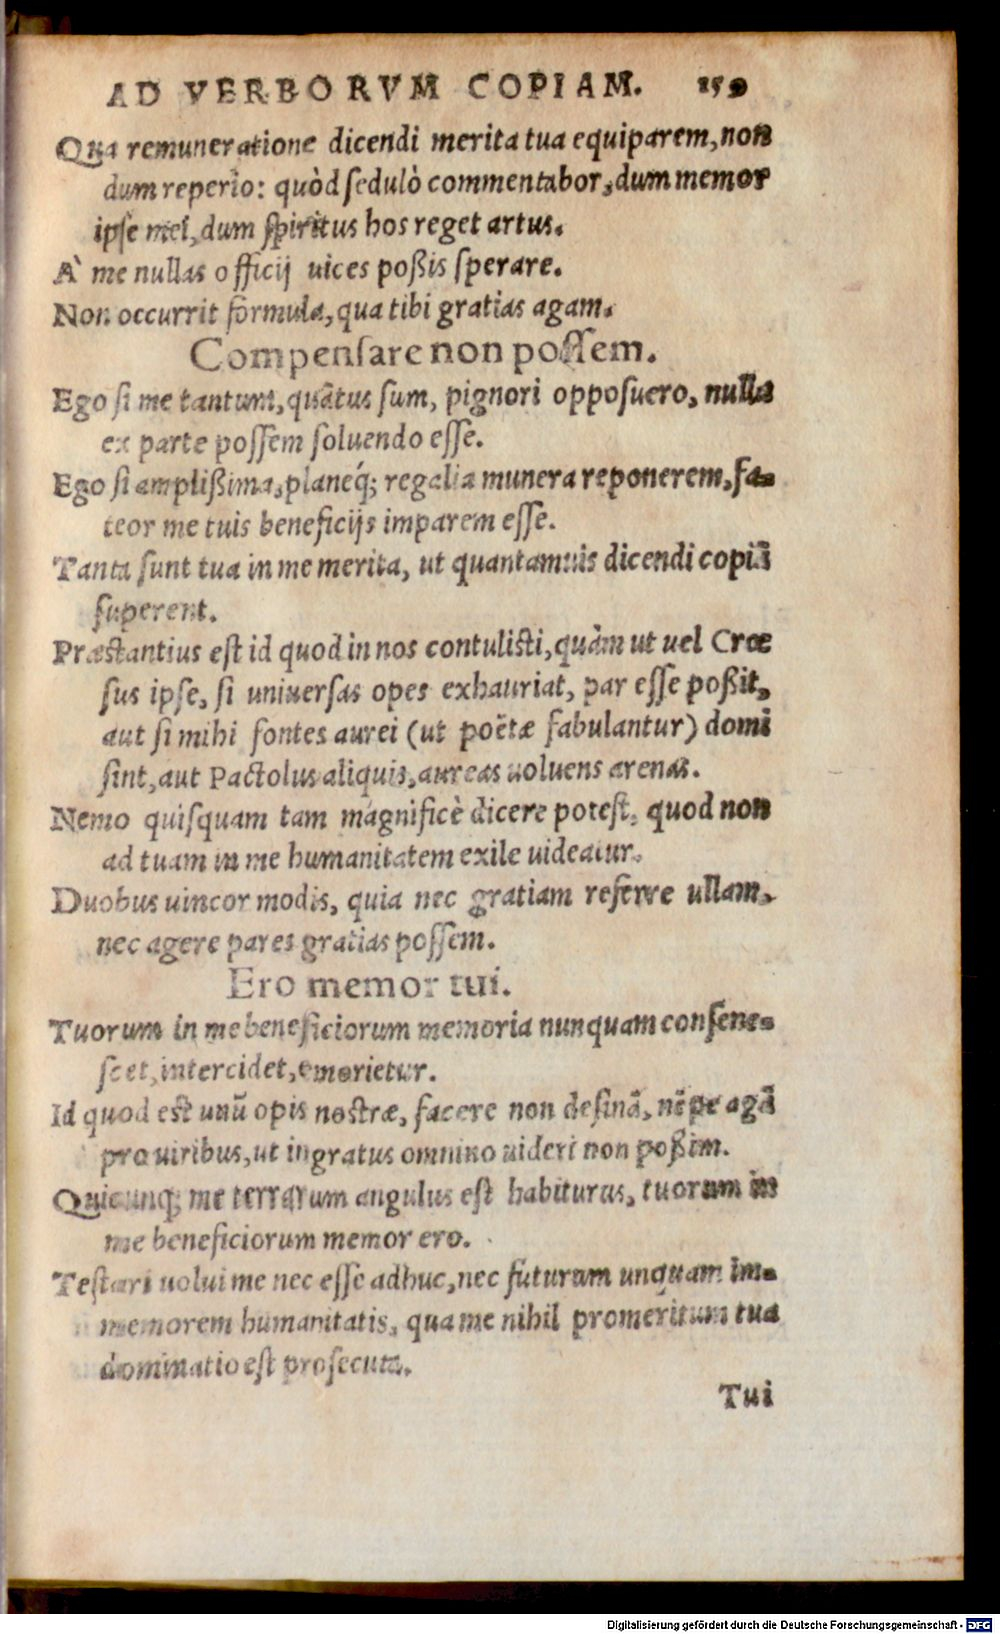 AD VERBORVM COPIAM. 159
Qua remuneratione dicendi merita tua equiparem, non
dum reperio: quòd sedulò commentabor, dum memor
ipse mei, dum spiritus hos reget artus.
À me nullas officij uices poßis sperare.
Non occurrit formula, qua tibi gratias agam.
Compensare non possem.
Ego si me tantum, quãtus sum, pignori opposuero, nulla
ex parte possem soluendo esse.
Ego si amplißima, planeq́; regalia munera reponerem, fa-
teor me tuis beneficijs imparem esse.
Tanta sunt tua in me merita, ut quantamuis dicendi copiã
superent.
Præstantius est id quod in nos contulisti, quàm ut uel Croe
sus ipse, si uniuersas opes exhauriat, par esse poßit,
aut si mihi fontes aurei (ut poëtæ fabulantur) domi
sint, aut Pactolus aliquis, aureas uoluens arenas.
Nemo quisquam tam magnificè dicere potest, quod non
ad tuam in me humanitatem exile uideatur.
Duobus uincor modis, quia nec gratiam referre ullam,
nec agere pares gratias possem.
Ero memor tui.
Tuorum in me beneficiorum memoria nunquam consene-
scet, intercidet, emorietur.
Id quod est unũ opis nostræ, facere non desinã, nẽpe agã
pro uiribus, ut ingratus omnino uideri non poßim.
Quicunq; me terrarum angulus est habiturus, tuorum in
me beneficiorum memor ero.
Testari uolui me nec esse adhuc, nec futurum unquam im-
memorem humanitatis, qua me nihil promeritum tua
dominatio est prosecuta.
Tui
Digitalisierung gefördert durch die Deutsche Forschungsgemeinschaft - DFG